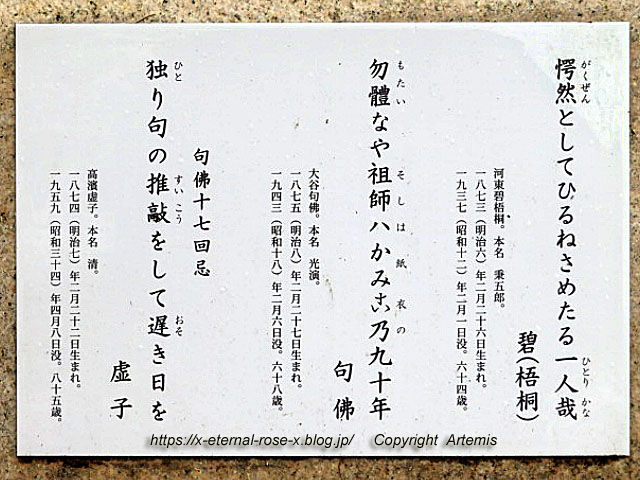 愕然としてひるねさめたる一人哉
がくぜん
ひとり かな
碧(梧桐)
河東碧梧桐。本名 秉五郎。
一八七三(明治六)年二月二十六日生まれ。
一九三七(昭和十二)年二月一日没。六十四歳。
勿體なや祖師ハかみこ乃九十年
もたい
そしは紙衣の
句佛
大谷句佛。本名 光演。
一八七五(明治八)年二月二十七日生まれ。
一九四三(昭和十八)年二月六日没。六十八歳。
句佛十七回忌
独り句の推敲をして遅き日を
ひと
すいこう
おそ
虚子
高濱虚子。本名 清。
一八七四(明治七)年二月二十二日生まれ。
一九五九(昭和三十四)年四月八日没。八十五歳。
https://x-eternal-rose-x.blog.jp/ Copyright Artemis